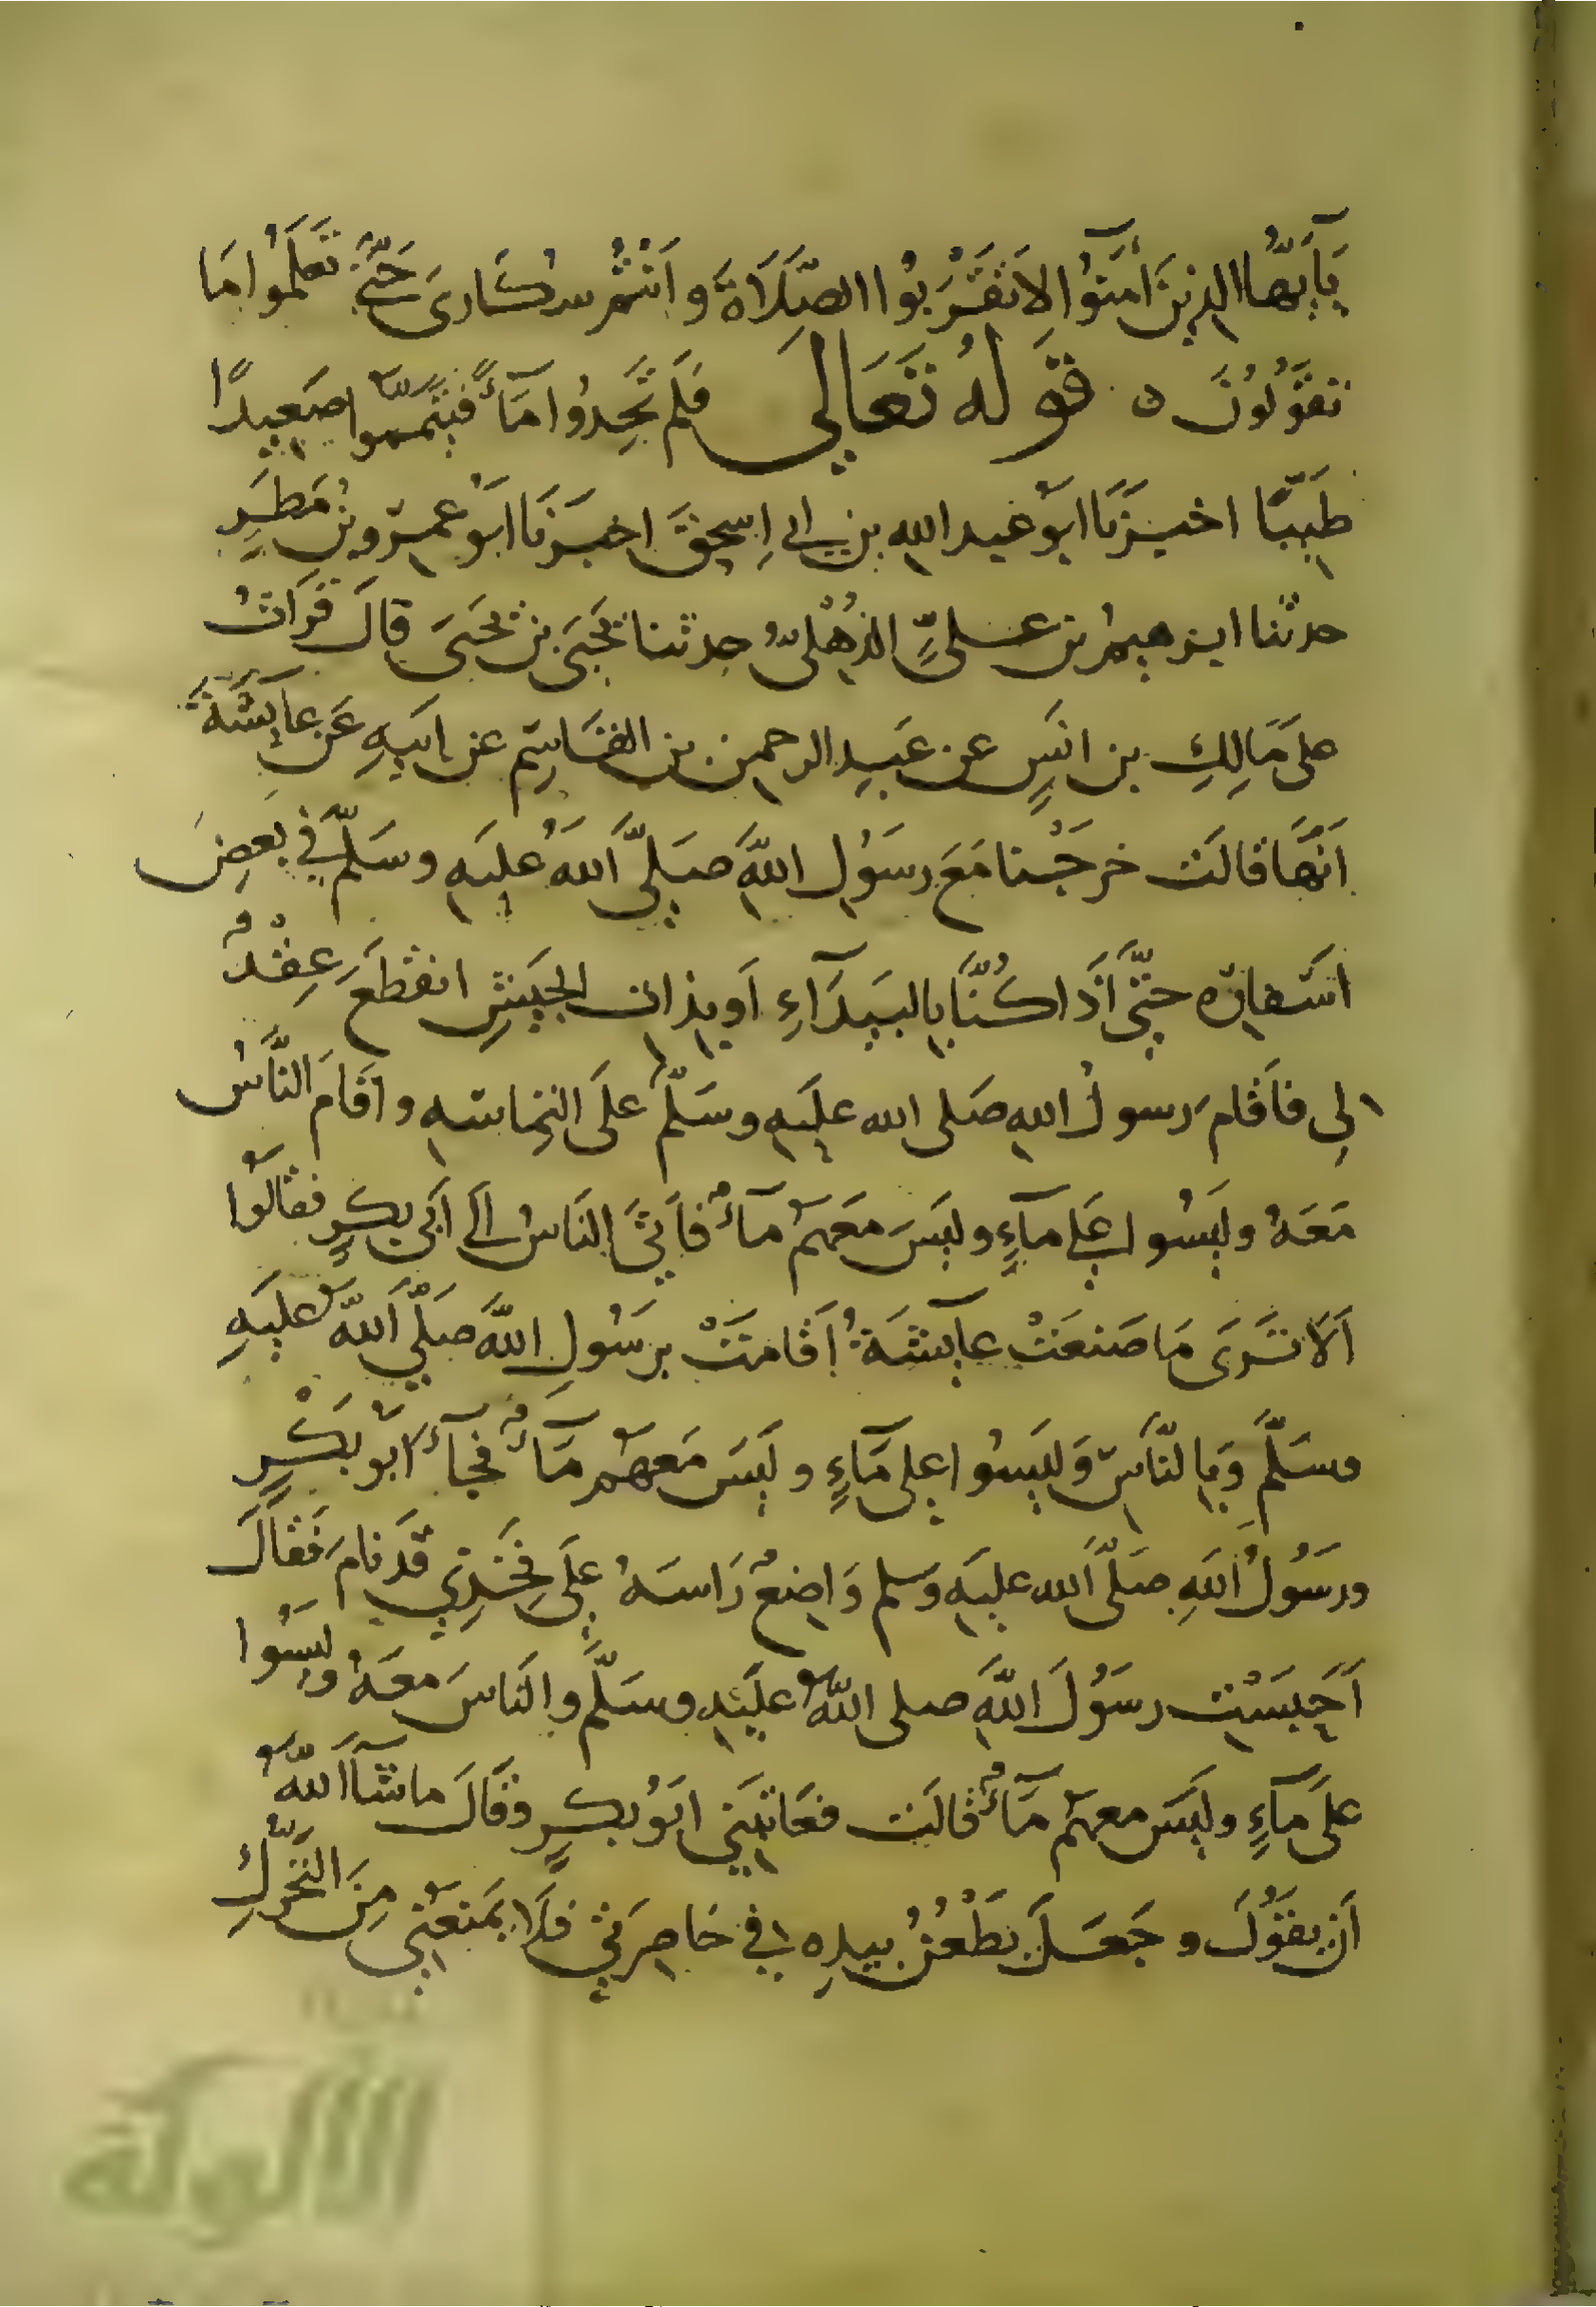 يَآ أَيُّهَا الذينَ آمَنُوا لا تَقْرَبُوا الصَّلَاةَ وَأَنْتُمْ سُكَارَى حَتَّى تَعْلَمُوا مَا
تَقُولُونَ ٥ قَولهُ تَعَالَى فَلَم تَجِدُوا مَآءً فَتَيَمَّمُوا صَعِيدًا
طَيِّبًا اخبَرَنَا ابَو عَبد الله بن ابي اِسحقَ اخبَرَنَا ابَو عَمرو بنُ مَطَرٍ
حدثنا ابرهيمُ بن عَلىٍّ الذُهْلىُّ حدثنا يَحْيَى بن يَحْيَى قالَ قَرَأتُ
على مَالِكِ بن انَسٍ عن عَبدِ الرحمن بن القَاسِم عن اَبيهِ عَن عَآيِشَةَ
اَنَّهَا قالَت خرجْنا مَعَ رسَوُل اللَّهِ صَلَّى اللَّهُ عليَهِ وسَلَّم في بَعضِ
اَسْفارِه حَتَّى اَذَا كُنَّا بِالبَيدَآءِ اَو بِذات الجَيشِ انقطَعَ عِقْدٌ
لِي فاَقَام رَسولُ اللهِ صَلى الله عليَهِ وسَلَّم عَلَى التِماسَهِ واَقَامَ النَّاسُ
مَعَهُ وليَسُوا عَلى مآءٍ وليَسَ مَعَهُم مآءٌ فاَتَى النَاسُ اِلَى اَبَى بكرٍ فقالُوا
اَلَا تَرَى مَا صَنعَتْ عآيشَةُ اَقَامَتْ برسَوُلِ اللَّهِ صَلَّى اللَّهُ عليَهِ
وسَلَّم وَبِالنَّاسِ وَليَسُوا عَلى مَآءٍ وليَسَ مَعَهُم مَآءٌ فجآءَ ابَو بَكْرٍ
ورَسُولُ اللَهِ صَلَّى الله عليَهِ وَسلم وَاضِعٌ رَاسَهُ عَلَى فَخِذِي قَد نامَ فَقَالَ
اَحَبَسْتِ رسَوُلَ اللَّهِ صلى اللَّهُ عليَهِ وسَلَّم وَالنَاسَ مَعَهُ وليسُوا
عَلَى مآءٍ وليَسَ مَعهُم مَآءٌ قالَت فعَاتبَنَي ابَوُ بكرٍ وقَالَ ماشَآ اللَّهُ
اَن يقَوُلَ وجَعَلَ يَطْعُنُ بيدِه في خاصِرَتي فَلَا يمَنعَنُي مِنَ التَحَرُّكِ
الألوكة